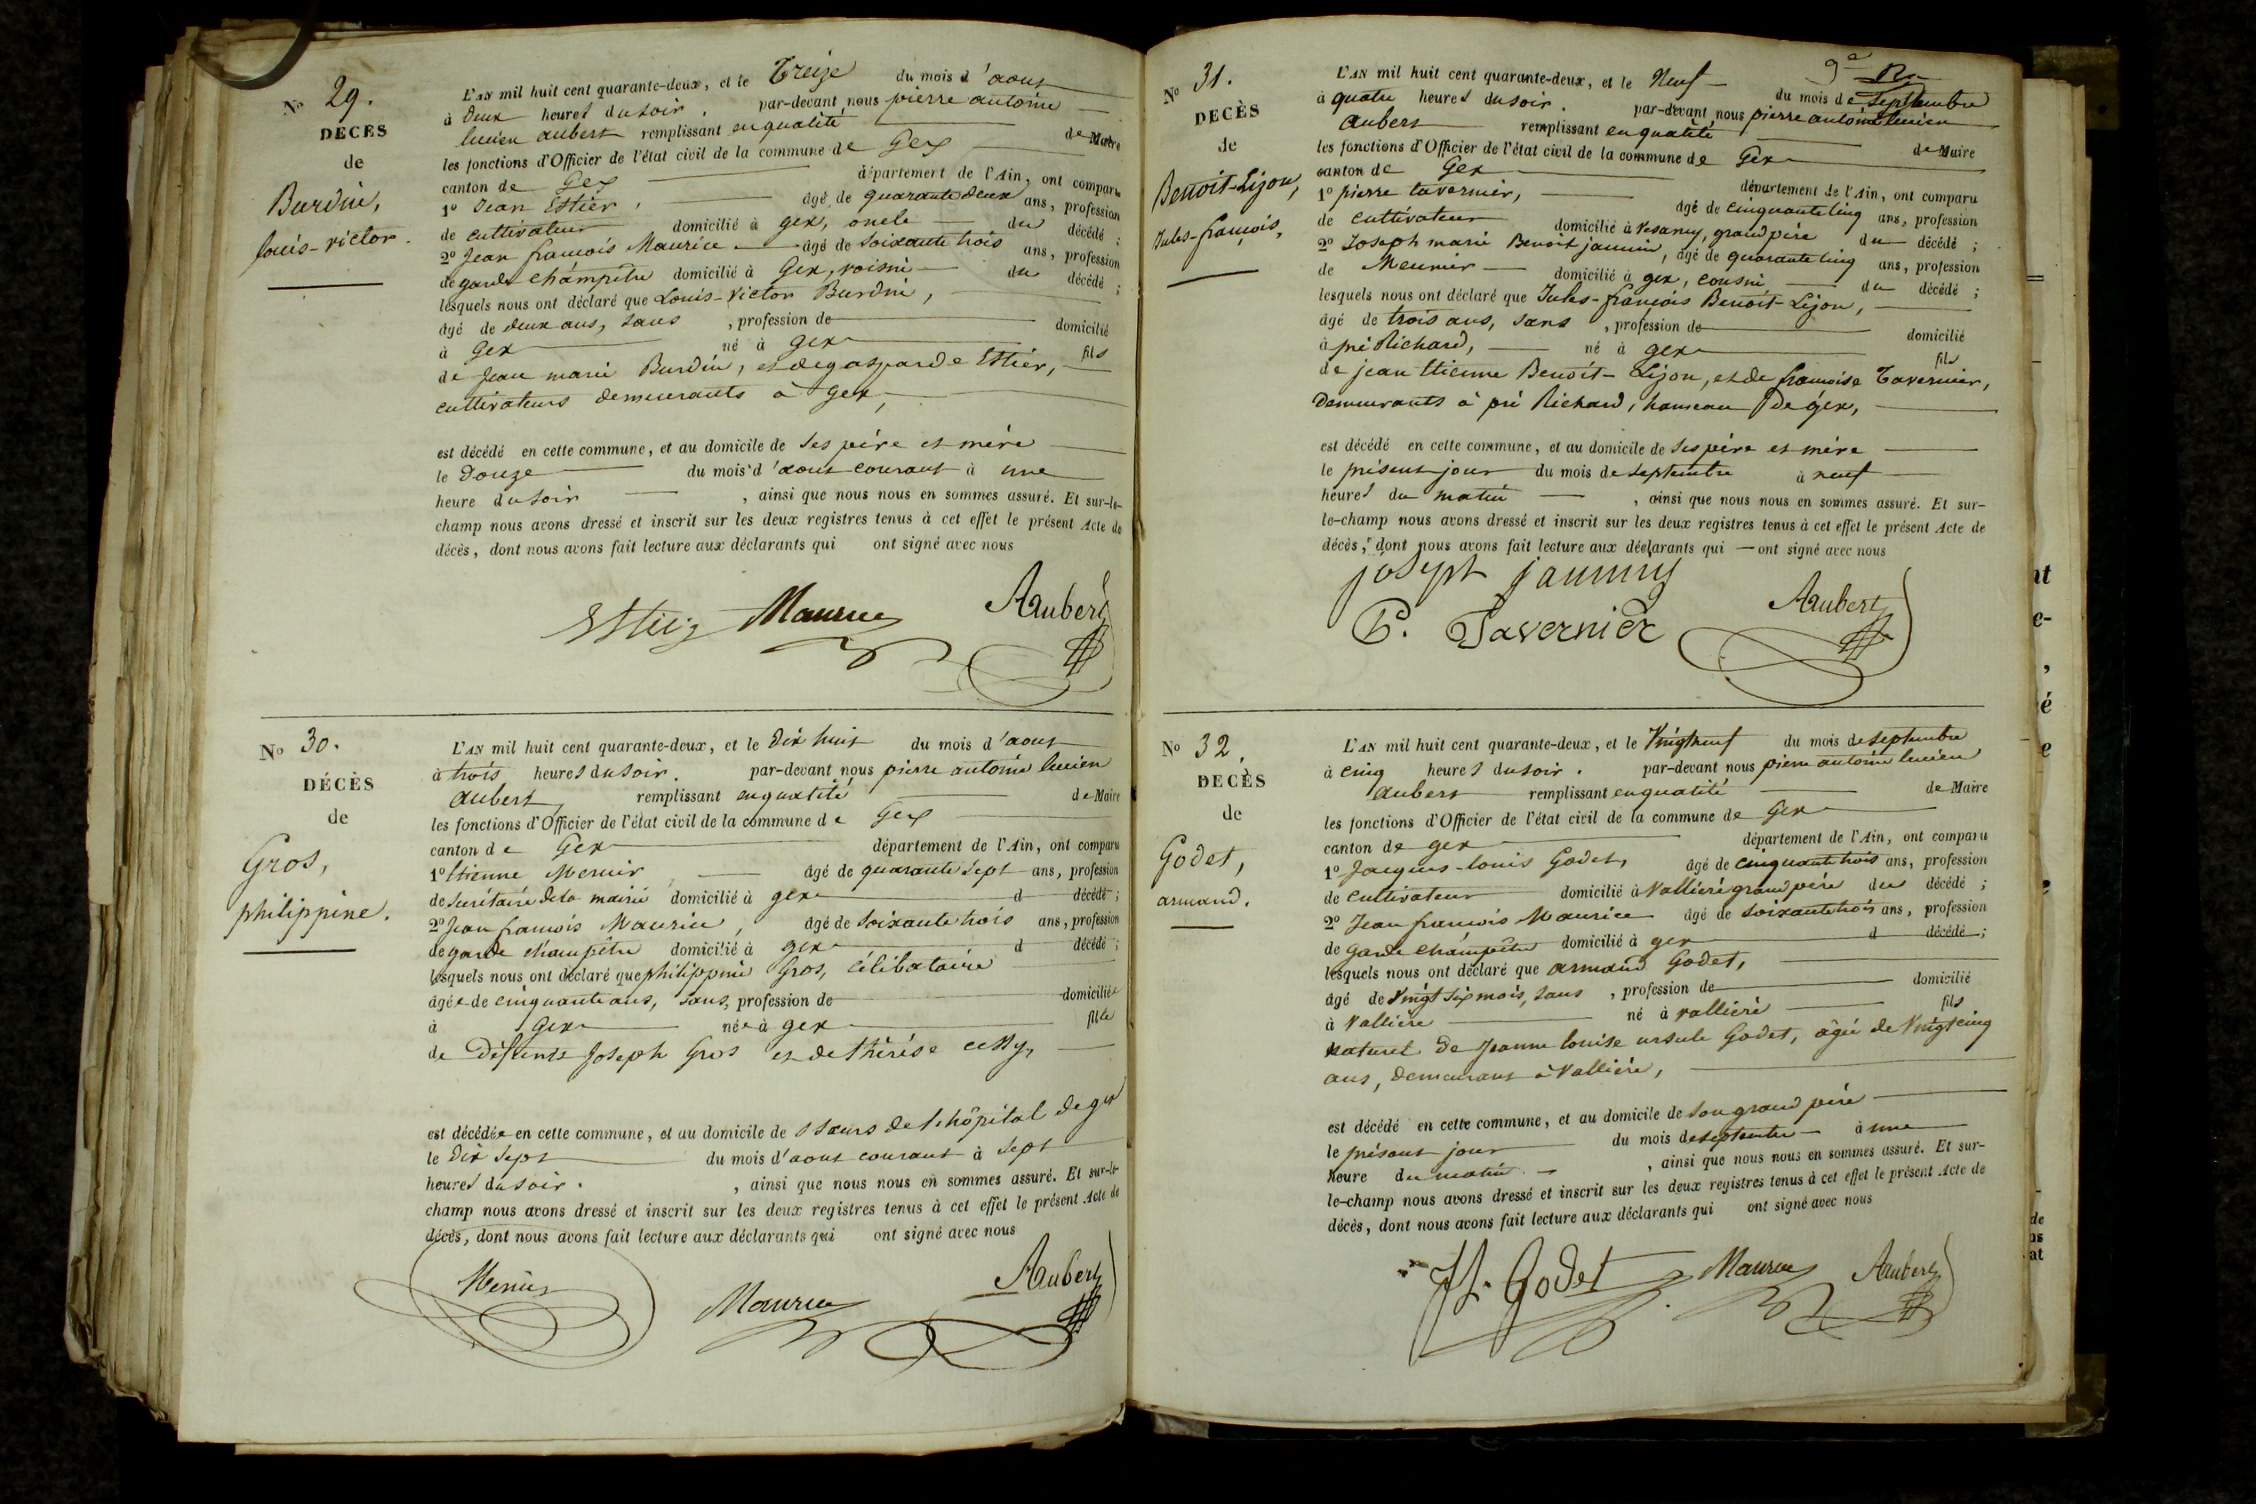 No 29.
DÉCÈS
de
Burdin,
louis-victor.
L'AN mil huit cent quarante-deux, et le Treize du mois d'aout
à deux heures du soir. par-devant nous pierre antoine
lucien aubert remplissant en qualité de Maire
les fonctions d'Officier de l'état civil de la commune de Gex
canton de Gex département de l'Ain, ont comparu
1º Jean Estier, âgé de quarante deux ans, profession
de cultivateur domicilié à gex, oncle du décédé ;
2º Jean françois Maurice âgé de soixante trois ans, profession
de garde champêtre domicilié à Gex, voisin du décédé ;
lesquels nous ont déclaré que Louis-Victor Burdin,
âgé de deux ans, sans , profession de domicilié
à Gex né à gex fils
de Jean marie Burdin, et de gasparde Estier,
cultivateurs demeurants à gex,
est décédé en cette commune, et au domicile de ses père et mère
le Douze du mois d'aout courant à une
heure du soir , ainsi que nous nous en sommes assuré. Et sur-le-
champ nous avons dressé et inscrit sur les deux registres tenus à cet effet le présent Acte de
décès, dont nous avons fait lecture aux déclarants qui ont signé avec nous
Maurice Aaubert
No 30.
DÉCÈS
de
Gros,
philippine.
L'AN mil huit cent quarante-deux, et le dix huit du mois d'aout
à trois heures du soir. par-devant nous pierre antoine lucien
aubert remplissant en qualité de Maire
les fonctions d'Officier de l'état civil de la commune de Gex
canton de Gex département de l'Ain, ont comparu
1º Etienne Mernier âgé de quarante sept ans, profession
de secrétaire de la mairie domicilié à gex d décédé ;
2º Jean françois Maurice, âgé de soixante trois ans, profession
de garde champêtre domicilié à gex d décédé ;
lesquels nous ont déclaré que philippine Gros, célibataire
âgée de cinquante ans, sans, profession de domiciliée
à gex née à gex fille
de défunts Joseph Gros et de thérèse
est décédée en cette commune, et au domicile de sœurs de l'hôpital de gex
le dix sept du mois d'aout courant à sept
heures du soir. , ainsi que nous nous en sommes assuré. Et sur-le-
champ nous avons dressé et inscrit sur les deux registres tenus à cet effet le présent Acte de
décès, dont nous avons fait lecture aux déclarants qui ont signé avec nous
Maurice Aaubert
No 31.
DECÈS
de
Benoit-Lizon,
Jules-françois,
L'AN mil huit cent quarante-deux, et le Neuf du mois de septembre
à quatre heures du soir. par-devant nous pierre antoine lucien
aubert remplissant en qualité de Maire
les fonctions d'Officier de l'état civil de la commune de Gex
canton de Gex département de l'Ain, ont comparu
1º pierre tavernier, âgé de cinquante cinq ans, profession
de cultivateur domicilié à Vesancy, grand père du décédé ;
2º Joseph marie Benoit jannin, âgé de quarante cinq ans, profession
de Meunier domicilié à gex, cousin du décédé ;
lesquels nous ont déclaré que Jules-françois Benoit-Lizon,
âgé de trois ans, sans , profession de domicilié
à pré Richard, né à gex fils
de jean Etienne Benoit-Lizon, et de françoise Tavernier,
demeurants à pré Richard, hameau de gex,
est décédé en cette commune, et au domicile de ses père et mère
le présent jour du mois de septembre à neuf
heures du matin , ainsi que nous nous en sommes assuré. Et sur-
le-champ nous avons dressé et inscrit sur les deux registres tenus à cet effet le présent Acte de
décès, dont nous avons fait lecture aux déclarants qui ont signé avec nous
joseph
P. Tavernier Aaubert
No 32,
DECÈS
de
Godet,
armand.
L'AN mil huit cent quarante-deux, et le Vingt neuf du mois de septembre
à cinq heures du soir. par-devant nous pierre antoine lucien
aubert remplissant en qualité de Maire
les fonctions d'Officier de l'état civil de la commune de Gex
canton de gex département de l'Ain, ont comparu
1º Jacques-louis Godet, âgé de cinquante trois ans, profession
de cultivateur domicilié à Vallière grand père du décédé ;
2º Jean françois Maurice âgé de soixante trois ans, profession
de garde champêtre domicilié à gex d décédé ;
lesquels nous ont déclaré que armand Godet,
âgé de Vingt six mois, sans , profession de domicilié
à Vallière né à vallière fils
naturel de Jeanne louise ursule Godet, âgée de Vingt cinq
ans, demeurant à Vallière,
est décédé en cette commune, et au domicile de son grand père
le présent jour du mois de septembre à une
heure du matin , ainsi que nous nous en sommes assuré. Et sur-
le-champ nous avons dressé et inscrit sur les deux registres tenus à cet effet le présent Acte de
décès, dont nous avons fait lecture aux déclarants qui ont signé avec nous
JL. Godet Maurice Aaubert